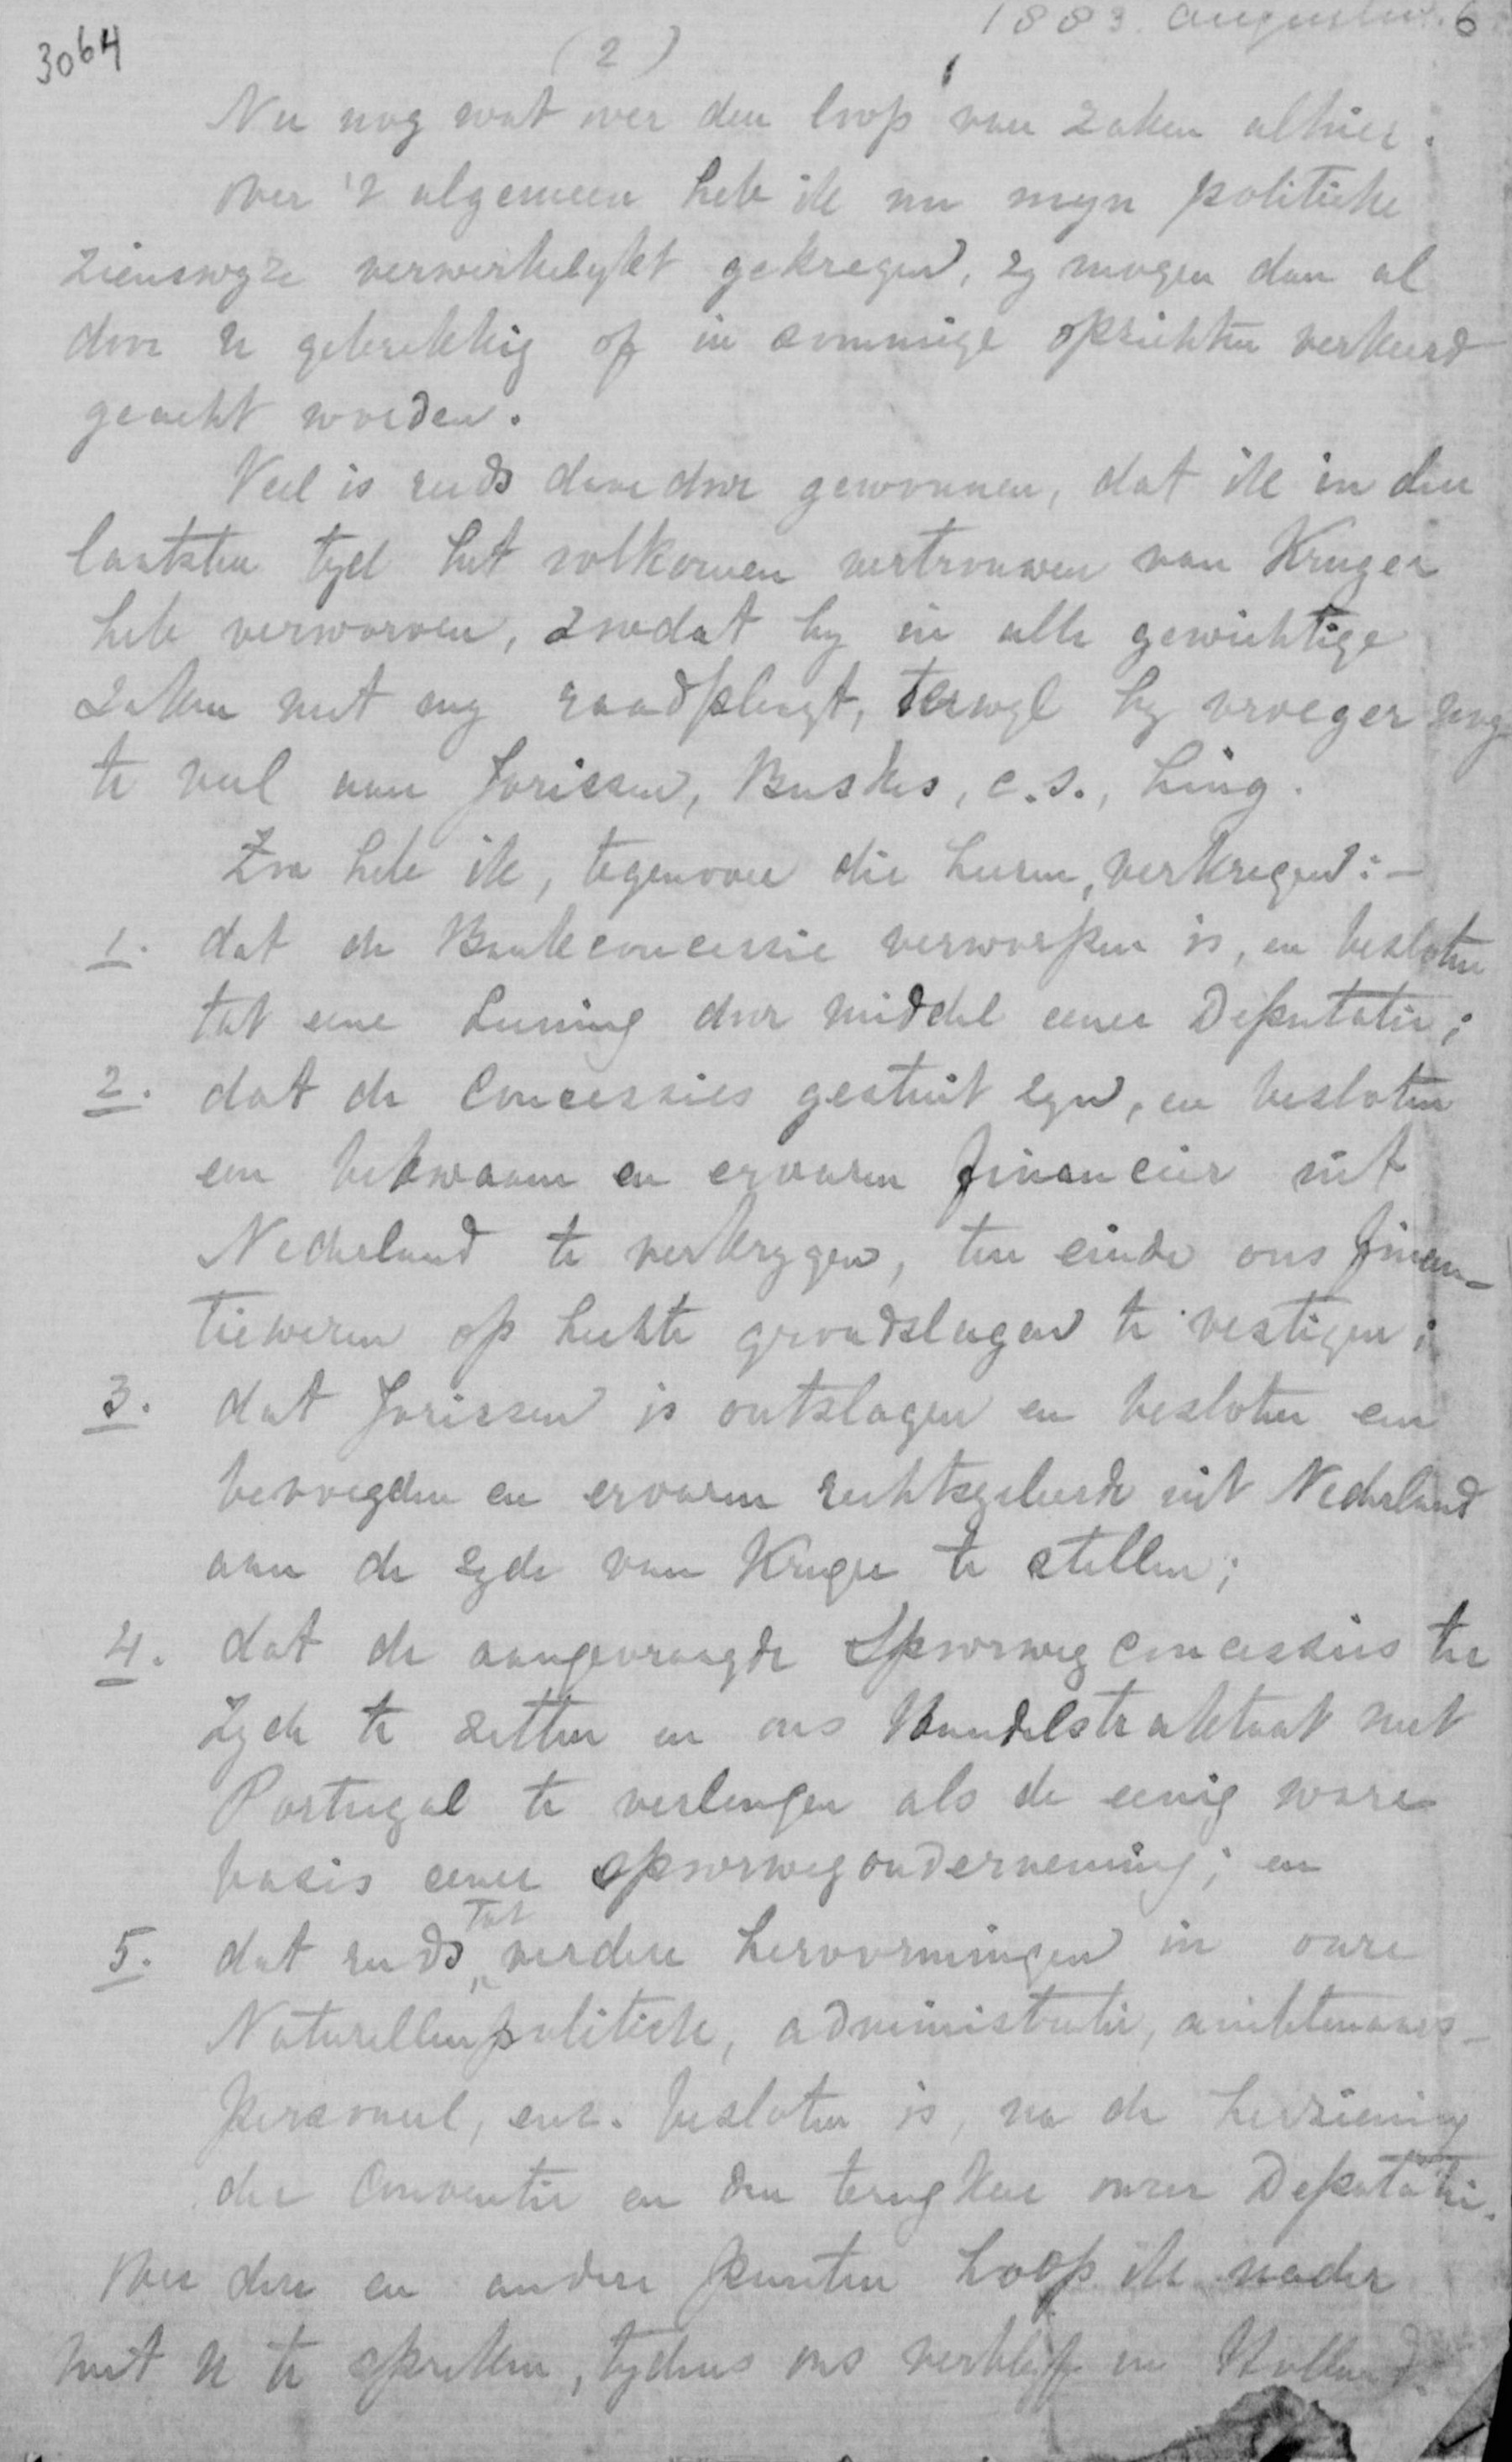 1883. Augustus. 6
3064
(2)
Nu nog wat over den loop van zaken alhier.
Over 't algemeen heb ik nu myn politieke
zienswyze verwerkelykt gekregen, zy mogen dan al
door U gebrekkig of in sommige opzichten verkeerd
geacht worden.
Veel is reeds daardoor gewonnen, dat ik in den
laatsten tyd het volkomen vertrouwen van Kruger
heb verworven, zoodat hy in alle gewichtige
zaken met my raadpleegt, terwyl hy vroeger nog
te veel aan Jorissen, Buskes, c.s., hing.
Zoo heb ik, tegenover die heeren, verkregen:—
1. dat de Bankconcessie verworpen is, en besloten
tot eene Leening door middel eener Deputatie;
2. dat de Concessies gestuit zyn, en besloten
een bekwaam en ervaren financier uit
Nederland te verkrygen, ten einde ons finan-
tiewezen op hechte grondslagen te vestigen;
3. dat Jorissen is ontslagen en besloten een
bevoegden en ervaren rechtsgeleerde uit Nederland
aan de zyde van Kruger te stellen;
4. dat de aangevraagde Spoorweg concessies ter
zyde te zetten en ons Handelstraktaat met
Portugal te verlengen als de eenig ware
basis eener spoorwegonderneming; en
5. dat reeds tot verdere hervormingen in onze
Naturellenpolitiek, administratie, ambtenaars-
personeel, enz. besloten is, na de herziening
der Conventie en den terugkeer onzer Deputatie.
Over deze en andere punten hoop ik nader
met U te spreken, tydens ons verblyf in Holland.